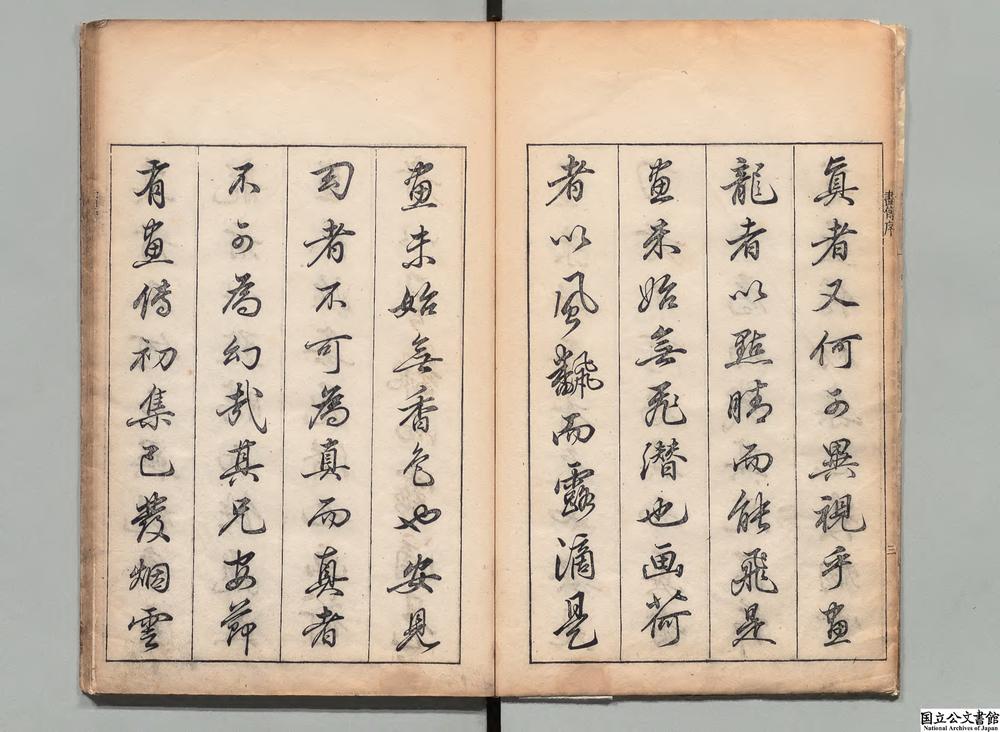 畫傳序
三
真者又何可異視乎畫
龍者以點睛而能飛是
畫未始無飛潛也画荷
者以風飜而露滴是
畫未始無香色也安見
幻者不可為真而真者
不可為幻哉其兄安節
有畫傳初集已發烟雲
国立公文書館
National Archives of Japan